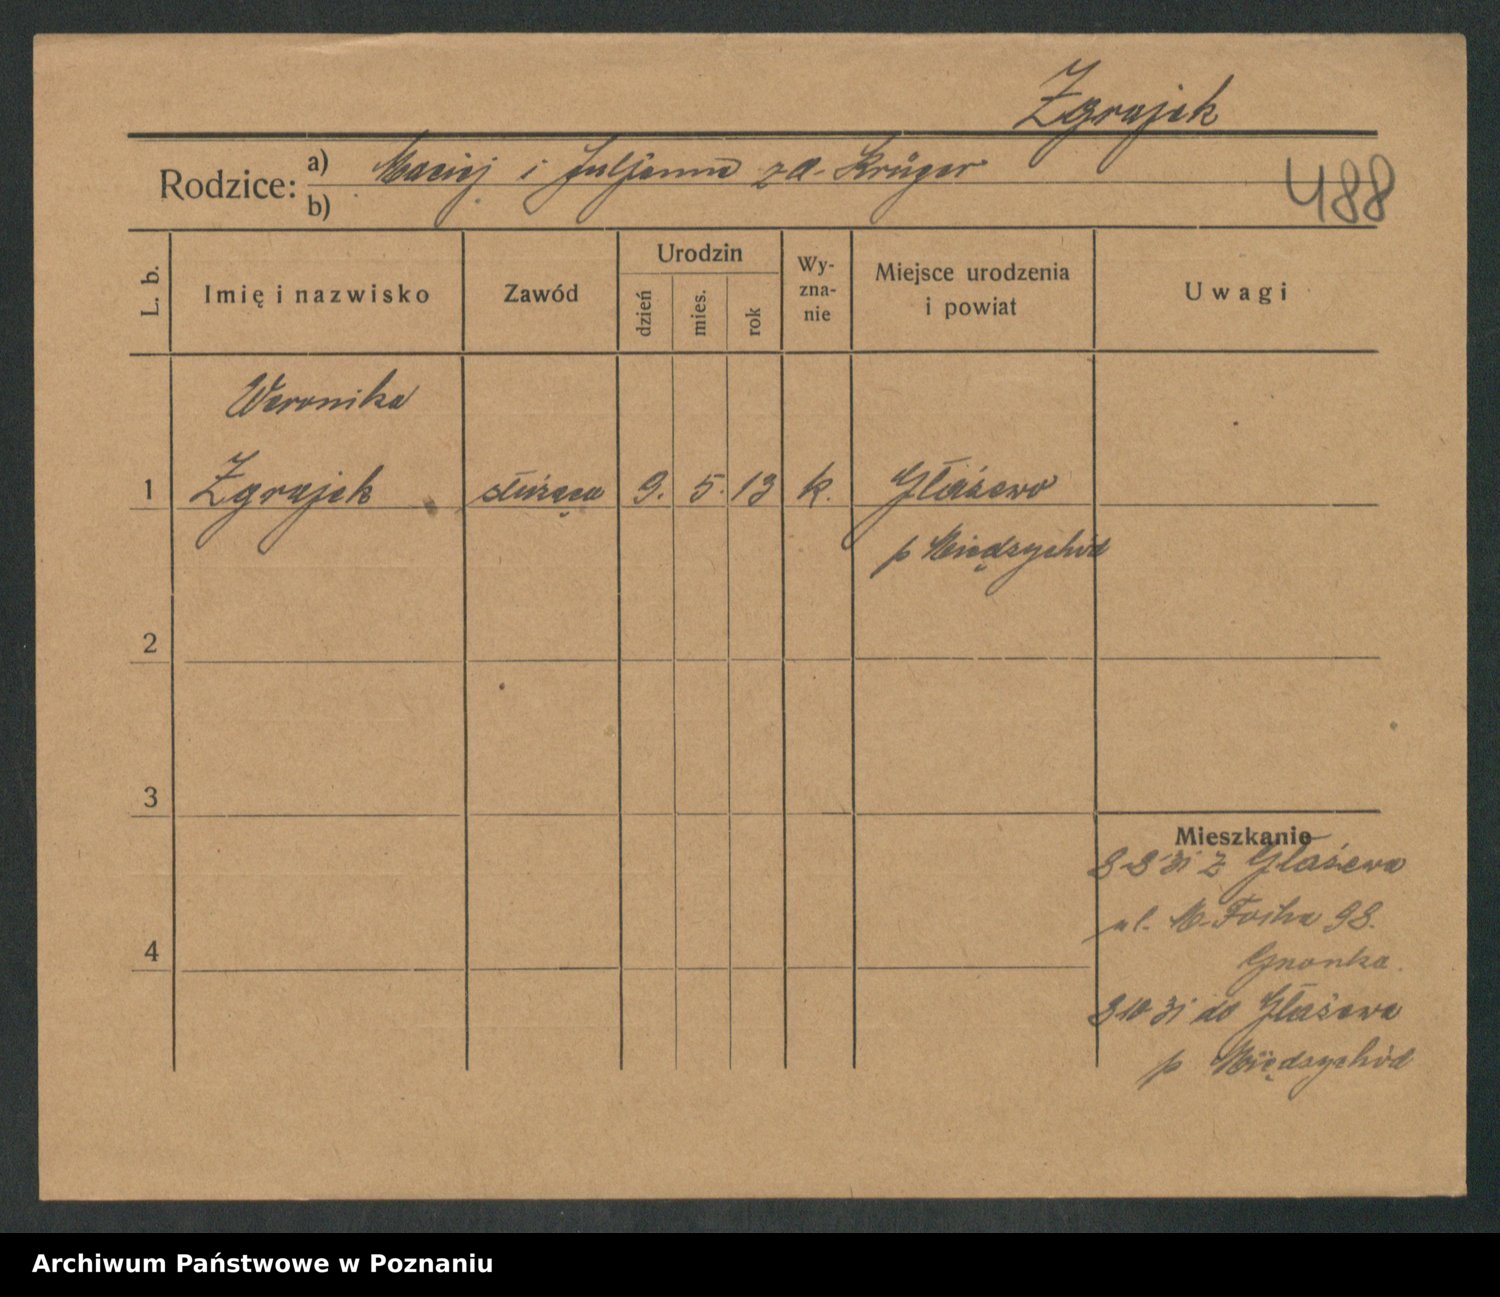 Zgrajek
Rodzice: a) Maciej i Juljanna zd. Krüger
b)
488
L. b.
Imię i nazwisko
Zawód
Urodzin
dzień
mies.
rok
Wy-
zna-
nie
Miejsce urodzenia
i powiat
Uwagi
Weronika
1 Zgrajek służąca 9. 5. 13 k. Głażewo
p Międzychód
2
3
4
Mieszkanie
31 z Głażewa
ul. M. Focha 98.
10 31 do Głażewa
p Międzychód
Archiwum Państwowe w Poznaniu